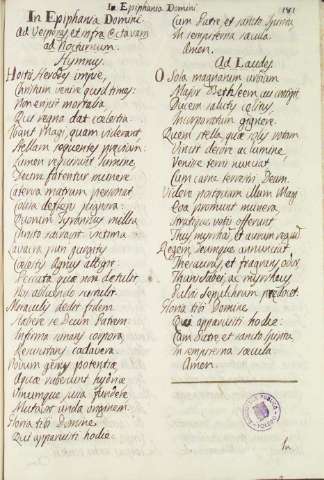 In Epiphania Domini
181
In Epiphania Domini.
Ad Vesperas et infra Octavam
ad Nocturnum.
Hymnus.
Hostis Herodes impie,
Christum venire quid times?
Non eripit mortalia
Qui regna dat cælestia.
Ibant Magi, quam viderant
Stellam sequentes præviam:
Lumen requirunt lumine,
Deum fatentur munere.
Caterva matrum personat
pignora:
Quorum Tyrannus millia
Christo sacravit victima
Lavacra puri gurgitis
Cælestis Agnus attigit
Peccata quæ non detulit
Nos abluendo sustulit.
Miraculis dedit fidem
Habere se Deum Patrem
Infirma sanans corpora,
Resuscitans cadavera.
Novum genus potentiæ
Aquæ rubescunt hydriæ
Vinumque jussa fundere
Mutavit unda originem.
Gloria tibi Domine
Qui apparuisti hodie:
Cum Patre, et sancto Spiritu
In sempiterna sæcula
Amen.
Ad Laudes.
O Sola magnarum urbium
Major Bethleem, cui contigit
Ducem salutis cælitus
Incorporatum gignere.
Quem stella quæ solis rotam
Vincit decore, ac lumine,
Venisse terris nuntiat
Cum carne terrestri Deum.
Videre postquam illum Magi
Eoa promunt munera
Stratique votis offerunt
Thus, myrrham, et aurum regium
Regem, Deumque annunciant
Thesaurus, et fragrans odor
Thuris Sabæi, ac myrrheus
Pulvis sepulchrum prædocet.
Gloria tibi Domine
Qui apparuisti hodie:
Cum Patre, et sancto Spiritu
In sempiterna sæcula
Amen.
In